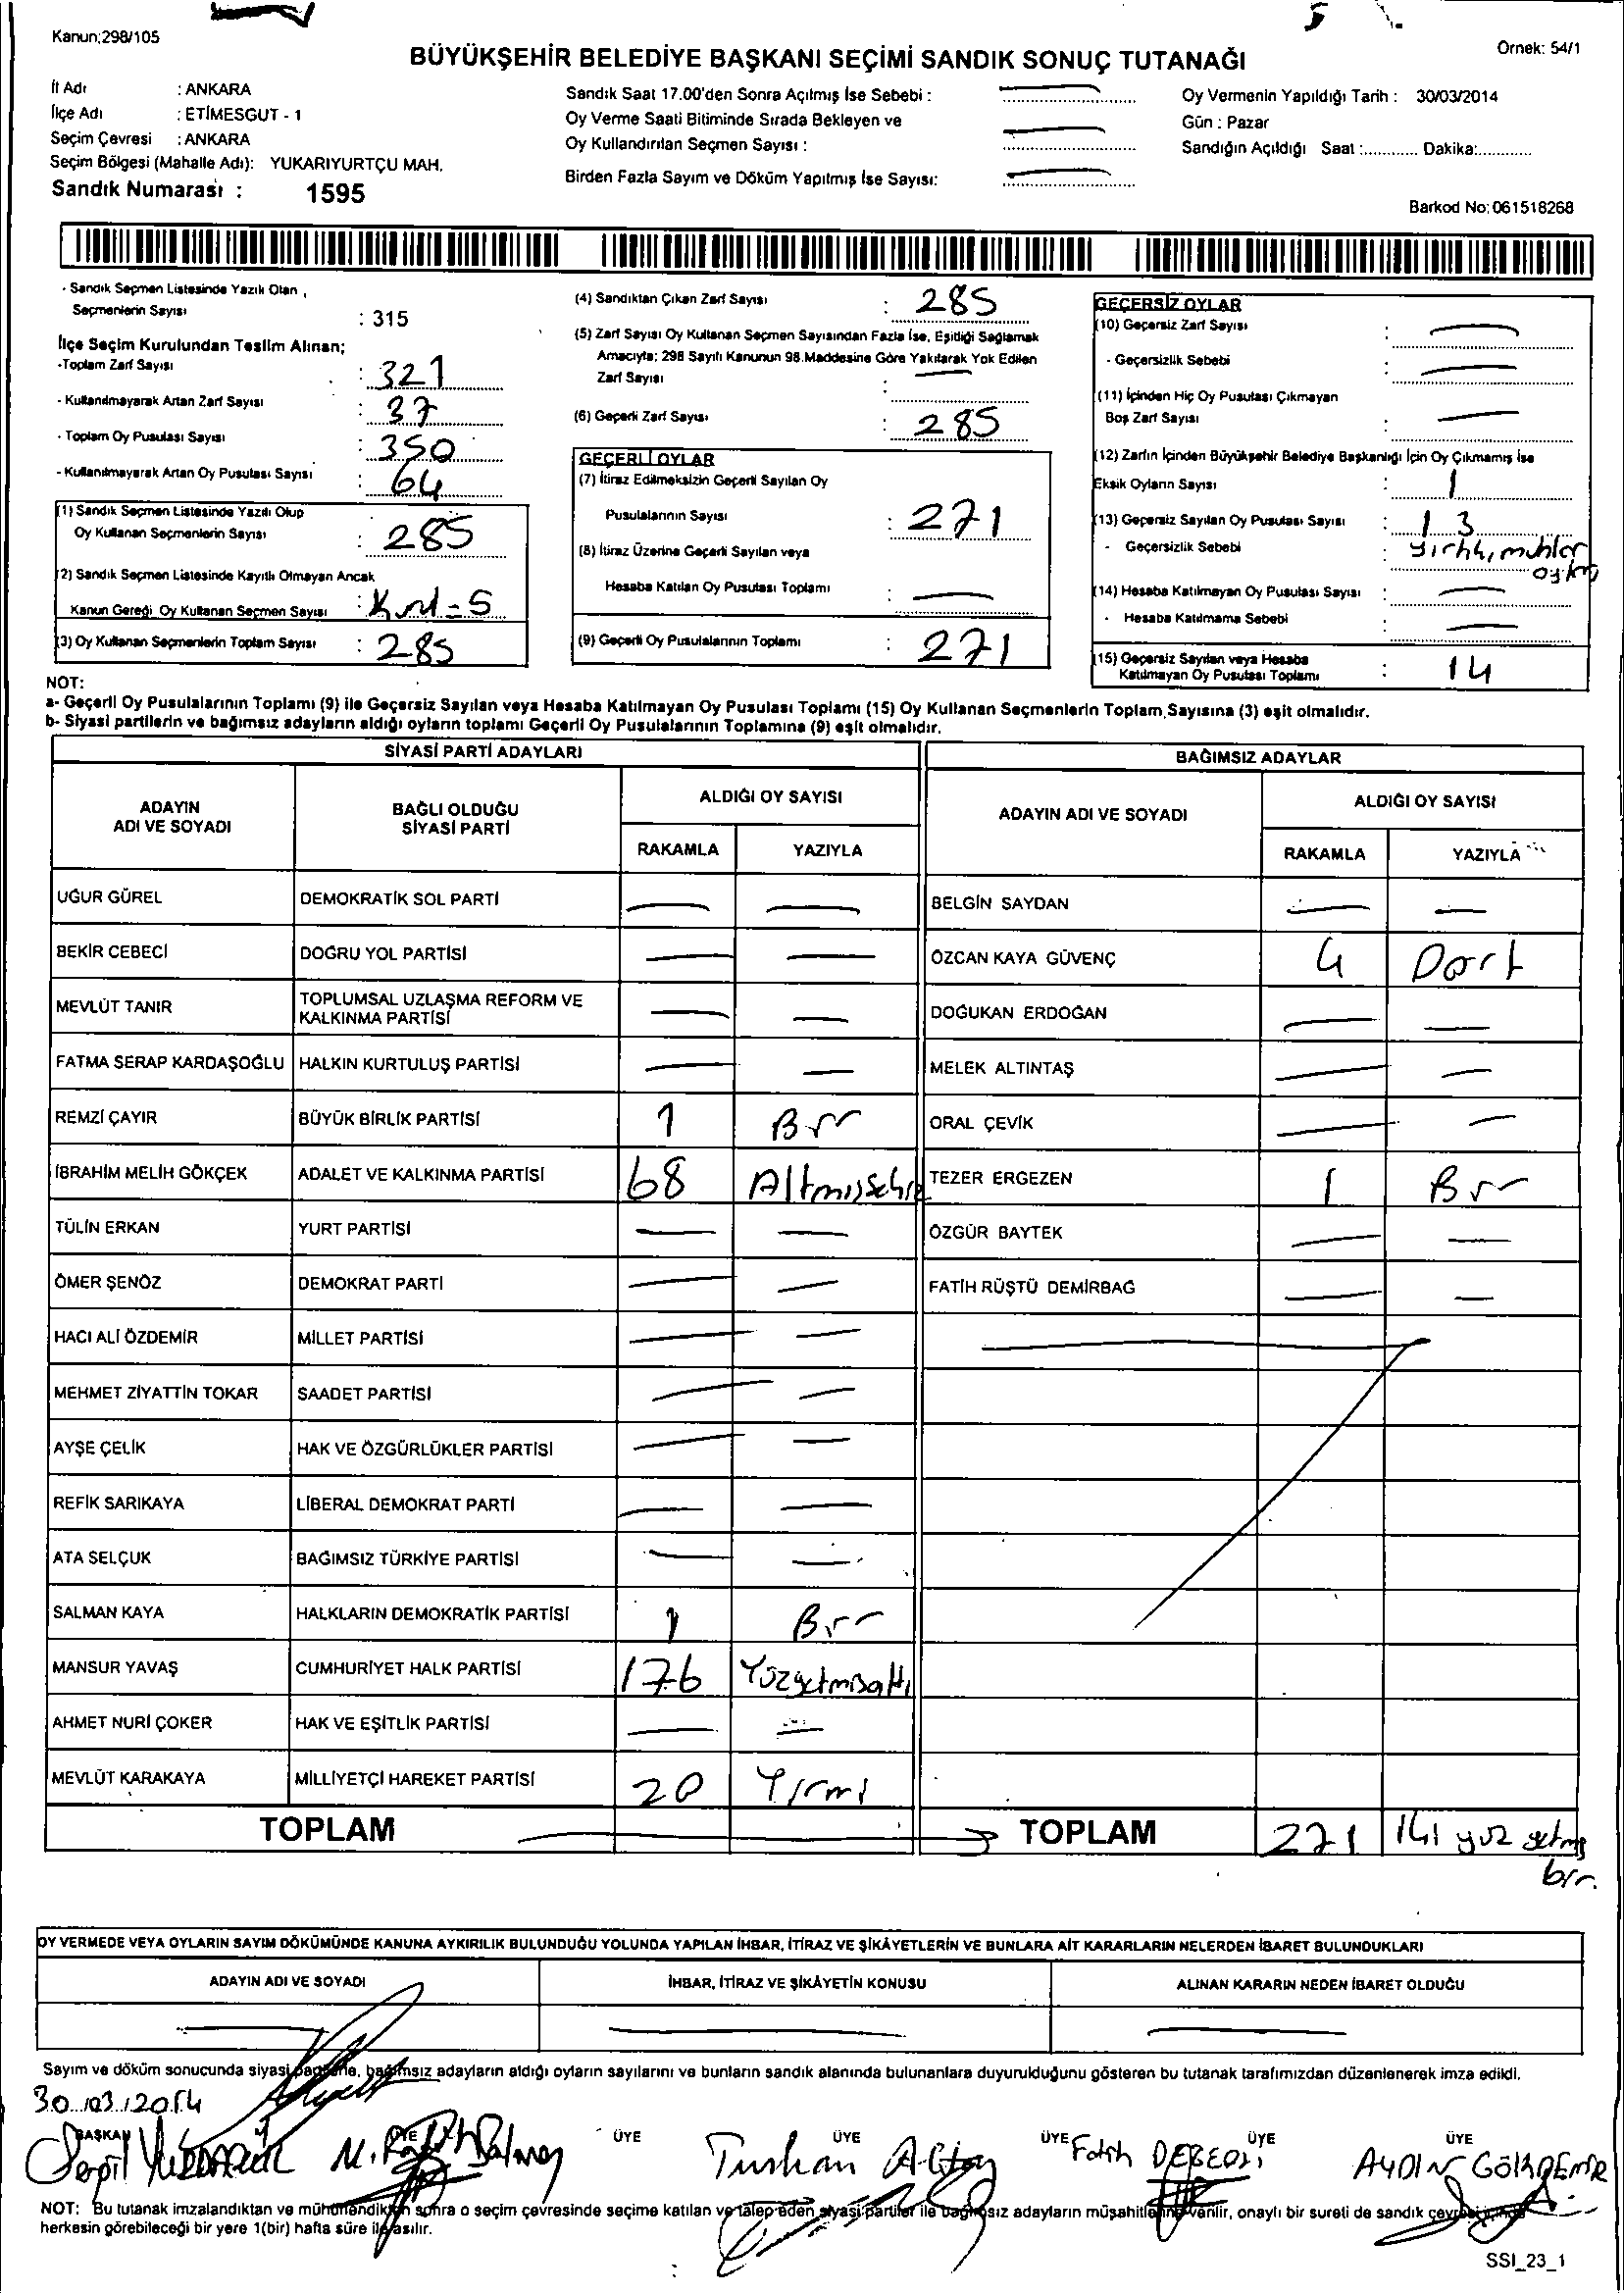 Kanun;298/105
Örnek: 54/1
BÜYÜKŞEHİR BELEDİYE BAŞKANI SEÇİMİ SANDIK SONUÇ TUTANAĞI
İl Adı : ANKARA
İlçe Adı : ETİMESGUT - 1
Seçim Çevresi : ANKARA
Seçim Bölgesi (Mahalle Adı): YUKARIYURTÇU MAH.
Sandık Numarası : 1595
Sandık Saat 17.00'den Sonra Açılmış İse Sebebi :
Oy Verme Saati Bitiminde Sırada Bekleyen ve
Oy Kullandırılan Seçmen Sayısı :
Birden Fazla Sayım ve Döküm Yapılmış İse Sayısı:
Oy Vermenin Yapıldığı Tarih : 30/03/2014
Gün : Pazar
Sandığın Açıldığı Saat :............ Dakika:............
Barkod No: 061518268
- Sandık Seçmen Listesinde Yazılı Olan
Seçmenlerin Sayısı : 315
İlçe Seçim Kurulundan Teslim Alınan;
-Toplam Zarf Sayısı : 321
- Kullanılmayarak Artan Zarf Sayısı : 37
- Toplam Oy Pusulası Sayısı : 350
- Kullanılmayarak Artan Oy Pusulası Sayısı : 64
(1) Sandık Seçmen Listesinde Yazılı Olup
Oy Kullanan Seçmenlerin Sayısı : 285
(2) Sandık Seçmen Listesinde Kayıtlı Olmayan Ancak
Kanun Gereği Oy Kullanan Seçmen Sayısı :
(3) Oy Kullanan Seçmenlerin Toplam Sayısı : 285
(4) Sandıktan Çıkan Zarf Sayısı : 285
(5) Zarf Sayısı Oy Kullanan Seçmen Sayısından Fazla İse, Eşitliği Sağlamak
Amacıyla; 298 Sayılı Kanunun 98.Maddesine Göre Yakılarak Yok Edilen
Zarf Sayısı :
(6) Geçerli Zarf Sayısı : 285
GEÇERLİ OYLAR
(7) İtiraz Edilmeksizin Geçerli Sayılan Oy
Pusulalarının Sayısı : 271
(8) İtiraz Üzerine Geçerli Sayılan veya
Hesaba Katılan Oy Pusulası Toplamı :
(9) Geçerli Oy Pusulalarının Toplamı : 271
GEÇERSİZ OYLAR
(10) Geçersiz Zarf Sayısı :
- Geçersizlik Sebebi :
(11) İçinden Hiç Oy Pusulası Çıkmayan
Boş Zarf Sayısı :
(12) Zarfın İçinden Büyükşehir Belediye Başkanlığı İçin Oy Çıkmamış İse
Eksik Oyların Sayısı : 1
(13) Geçersiz Sayılan Oy Pusulası Sayısı : 13
- Geçersizlik Sebebi :
(14) Hesaba Katılmayan Oy Pusulası Sayısı :
- Hesaba Katılmama Sebebi :
(15) Geçersiz Sayılan veya Hesaba
Katılmayan Oy Pusulası Toplamı : 14
NOT:
a- Geçerli Oy Pusulalarının Toplamı (9) ile Geçersiz Sayılan veya Hesaba Katılmayan Oy Pusulası Toplamı (15) Oy Kullanan Seçmenlerin Toplam Sayısına (3) eşit olmalıdır.
b- Siyasi partilerin ve bağımsız adayların aldığı oyların toplamı Geçerli Oy Pusulalarının Toplamına (9) eşit olmalıdır.
SİYASİ PARTİ ADAYLARI
ADAYIN ADI VE SOYADI BAĞLI OLDUĞU SİYASİ PARTİ ALDIĞI OY SAYISI
RAKAMLA YAZIYLA
UĞUR GÜREL DEMOKRATİK SOL PARTİ
BEKİR CEBECİ DOĞRU YOL PARTİSİ
MEVLÜT TANIR TOPLUMSAL UZLAŞMA REFORM VE KALKINMA PARTİSİ
FATMA SERAP KARDAŞOĞLU HALKIN KURTULUŞ PARTİSİ
REMZİ ÇAYIR BÜYÜK BİRLİK PARTİSİ 1 Bir
İBRAHİM MELİH GÖKÇEK ADALET VE KALKINMA PARTİSİ 68 Altmışsekiz
TÜLİN ERKAN YURT PARTİSİ
ÖMER ŞENÖZ DEMOKRAT PARTİ
HACI ALİ ÖZDEMİR MİLLET PARTİSİ
MEHMET ZİYATTİN TOKAR SAADET PARTİSİ
AYŞE ÇELİK HAK VE ÖZGÜRLÜKLER PARTİSİ
REFİK SARIKAYA LİBERAL DEMOKRAT PARTİ
ATA SELÇUK BAĞIMSIZ TÜRKİYE PARTİSİ
SALMAN KAYA HALKLARIN DEMOKRATİK PARTİSİ 1 Bir
MANSUR YAVAŞ CUMHURİYET HALK PARTİSİ 176 Yüzyetmişaltı
AHMET NURİ ÇOKER HAK VE EŞİTLİK PARTİSİ
MEVLÜT KARAKAYA MİLLİYETÇİ HAREKET PARTİSİ 20 Yirmi
TOPLAM
BAĞIMSIZ ADAYLAR
ADAYIN ADI VE SOYADI ALDIĞI OY SAYISI
RAKAMLA YAZIYLA
BELGİN SAYDAN
ÖZCAN KAYA GÜVENÇ 4 Dört
DOĞUKAN ERDOĞAN
MELEK ALTINTAŞ
ORAL ÇEVİK
TEZER ERGEZEN 1 Bir
ÖZGÜR BAYTEK
FATİH RÜŞTÜ DEMİRBAĞ
TOPLAM 271 iki yüz yetmiş
bir.
OY VERMEDE VEYA OYLARIN SAYIM DÖKÜMÜNDE KANUNA AYKIRILIK BULUNDUĞU YOLUNDA YAPILAN İHBAR, İTİRAZ VE ŞİKÂYETLERİN VE BUNLARA AİT KARARLARIN NELERDEN İBARET BULUNDUKLARI
ADAYIN ADI VE SOYADI İHBAR, İTİRAZ VE ŞİKÂYETİN KONUSU ALINAN KARARIN NEDEN İBARET OLDUĞU
Sayım ve döküm sonucunda siyasi partilerle, bağımsız adayların aldığı oyların sayılarını ve bunların sandık alanında bulunanlara duyurulduğunu gösteren bu tutanak tarafımızdan düzenlenerek imza edildi.
30.03.2014
BAŞKAN ÜYE ÜYE ÜYE ÜYE ÜYE ÜYE
Turhan Fatih AYDIN GÖKDEMİR
NOT: Bu tutanak imzalandıktan ve mühürlendikten sonra o seçim çevresinde seçime katılan ve talep eden siyasi partiler ile bağımsız adayların müşahitlerine verilir, onaylı bir sureti de sandık çevresi içinde
herkesin görebileceği bir yere 1(bir) hafta süre ile asılır.
SSI_23_1